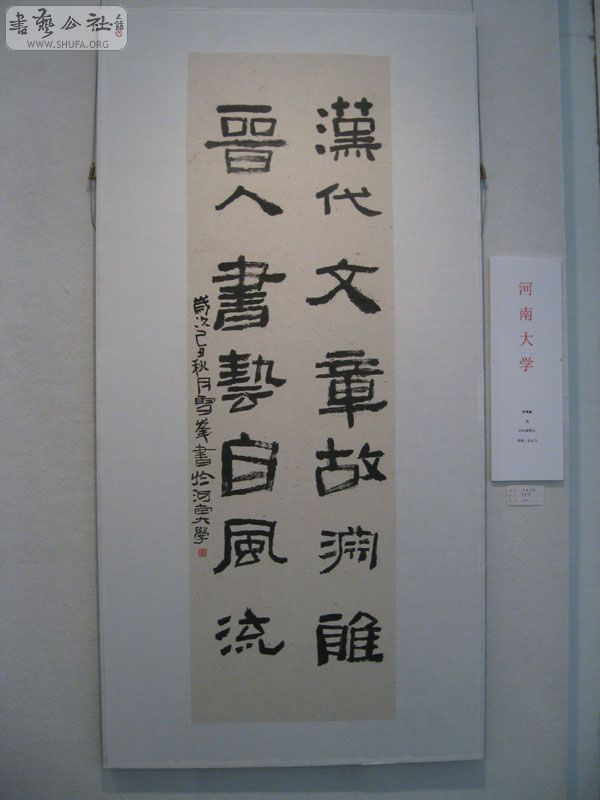 漢代文章故淵雅
晉人書藝自風流
歲次己丑秋月雪峯書於河南大學
河南大学
書藝公社
WWW.SHUFA.ORG